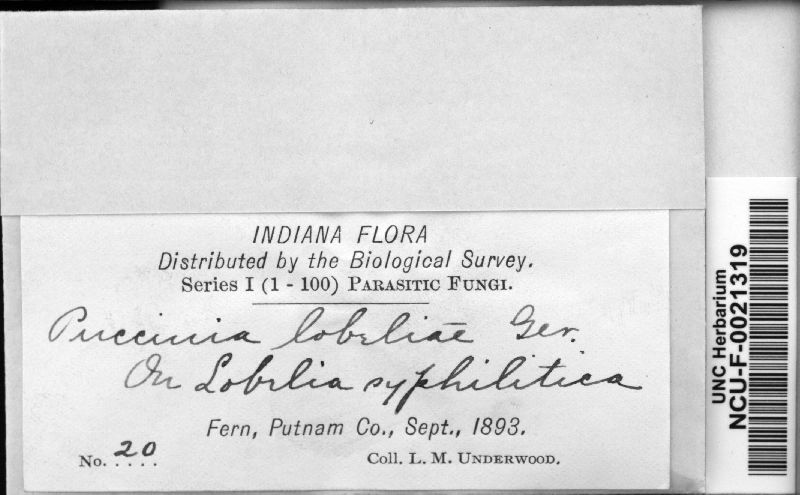 INDIANA FLORA
Distributed by the Biological Survey.
Series I (1 - 100) PARASITIC FUNGI.
Puccinia lobeliae Ger.
On Lobelia syphilitica
Fern, Putnam Co., Sept., 1893.
No. 20
Coll. L. M. UNDERWOOD.
UNC Herbarium
NCU-F-0021319